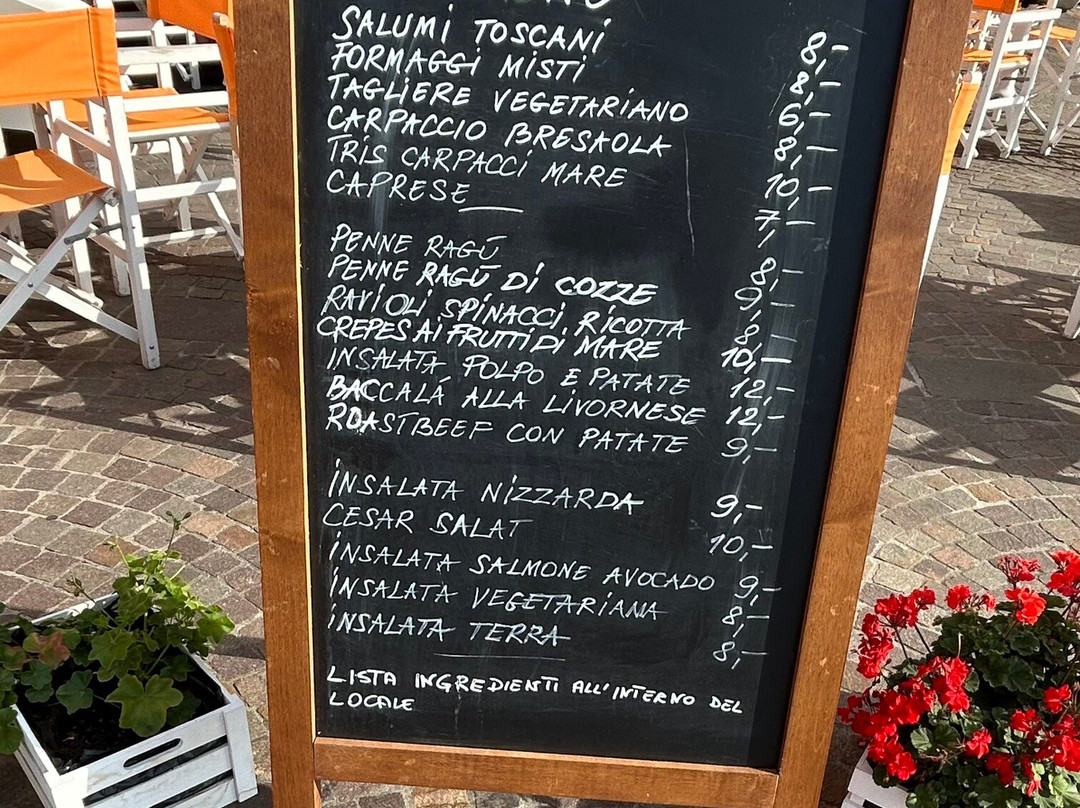 SALUMI TOSCANI 8,-
FORMAGGI MISTI 8,-
TAGLIERE VEGETARIANO 6,-
CARPACCIO BRESAOLA 8,-
TRIS CARPACCI MARE 10,-
CAPRESE 7,-
PENNE RAGÚ 8,-
PENNE RAGÚ DI COZZE 9,-
RAVIOLI SPINACCI, RICOTTA 8,-
CREPES AI FRUTTI DI MARE 10,-
INSALATA POLPO E PATATE 12,-
BACCALÁ ALLA LIVORNESE 12,-
ROASTBEEF CON PATATE 9,-
INSALATA NIZZARDA 9,-
CESAR SALAT 10,-
INSALATA SALMONE AVOCADO 9,-
INSALATA VEGETARIANA 8,-
INSALATA TERRA 8,-
LISTA INGREDIENTI ALL'INTERNO DEL
LOCALE